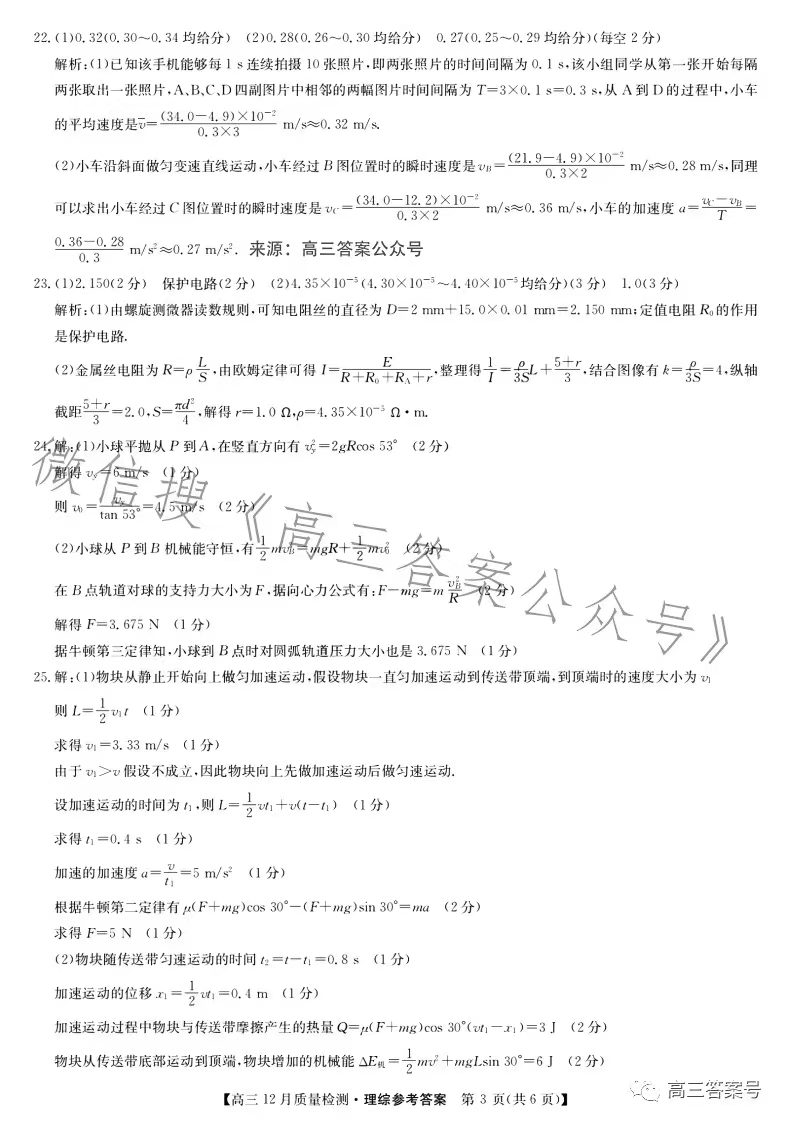 22.(1)0.32(0.30～0.34 均给分)  (2)0.28(0.26～0.30 均给分)  0.27(0.25～0.29 均给分)(每空 2 分)
解析:(1)已知该手机能够每 1 s 连续拍摄 10 张照片,即两张照片的时间间隔为 0.1 s,该小组同学从第一张开始每隔
两张取出一张照片,A、B、C、D 四副图片中相邻的两幅图片时间间隔为 T=3×0.1 s=0.3 s,从 A 到 D 的过程中,小车
的平均速度是v̄=(34.0−4.9)×10⁻²/0.3×3 m/s≈0.32 m/s.
(2)小车沿斜面做匀变速直线运动,小车经过 B 图位置时的瞬时速度是 v_B=(21.9−4.9)×10⁻²/0.3×2 m/s≈0.28 m/s,同理
可以求出小车经过 C 图位置时的瞬时速度是 v_C=(34.0−12.2)×10⁻²/0.3×2 m/s≈0.36 m/s,小车的加速度 a=v_C−v_B/T=
0.36−0.28/0.3 m/s²≈0.27 m/s². 来源：高三答案公众号
23.(1)2.150(2 分)  保护电路(2 分)  (2)4.35×10⁻⁵(4.30×10⁻⁵～4.40×10⁻⁵均给分)(3 分)  1.0(3 分)
解析:(1)由螺旋测微器读数规则,可知电阻丝的直径为 D=2 mm+15.0×0.01 mm=2.150 mm;定值电阻 R₀的作用
是保护电路.
(2)金属丝电阻为 R=ρL/S,由欧姆定律可得 I=E/R+R₀+R_A+r,整理得1/I=ρ/3S L+5+r/3,结合图像有 k=ρ/3S=4,纵轴
截距5+r/3=2.0,S=πd²/4,解得 r=1.0 Ω,ρ=4.35×10⁻⁵ Ω·m.
24.解:(1)小球平抛从 P 到 A,在竖直方向有 v_y²=2gRcos 53°  (2 分)
解得 v_y=6 m/s  (1 分)
则 v₀=v_y/tan 53°=4.5 m/s  (2 分)
(2)小球从 P 到 B 机械能守恒,有1/2mv_B²=mgR+1/2mv₀²  (2 分)
在 B 点轨道对球的支持力大小为 F,据向心力公式有:F−mg=m v_B²/R  (2 分)
解得 F=3.675 N  (1 分)
据牛顿第三定律知,小球到 B 点时对圆弧轨道压力大小也是 3.675 N  (1 分)
25.解:(1)物块从静止开始向上做匀加速运动,假设物块一直匀加速运动到传送带顶端,到顶端时的速度大小为 v₁
则 L=1/2v₁t  (1 分)
求得 v₁=3.33 m/s  (1 分)
由于 v₁>v 假设不成立,因此物块向上先做加速运动后做匀速运动.
设加速运动的时间为 t₁,则 L=1/2vt₁+v(t−t₁)  (1 分)
求得 t₁=0.4 s  (1 分)
加速的加速度 a=v/t₁=5 m/s²  (1 分)
根据牛顿第二定律有 μ(F+mg)cos 30°−(F+mg)sin 30°=ma  (2 分)
求得 F=5 N  (1 分)
(2)物块随传送带匀速运动的时间 t₂=t−t₁=0.8 s  (1 分)
加速运动的位移 x₁=1/2vt₁=0.4 m  (1 分)
加速运动过程中物块与传送带摩擦产生的热量 Q=μ(F+mg)cos 30°(vt₁−x₁)=3 J  (2 分)
物块从传送带底部运动到顶端,物块增加的机械能 ΔE机=1/2mv²+mgLsin 30°=6 J  (2 分)
【高三 12 月质量检测·理综参考答案  第 3 页(共 6 页)】
微信搜《高三答案公众号》
高三答案号